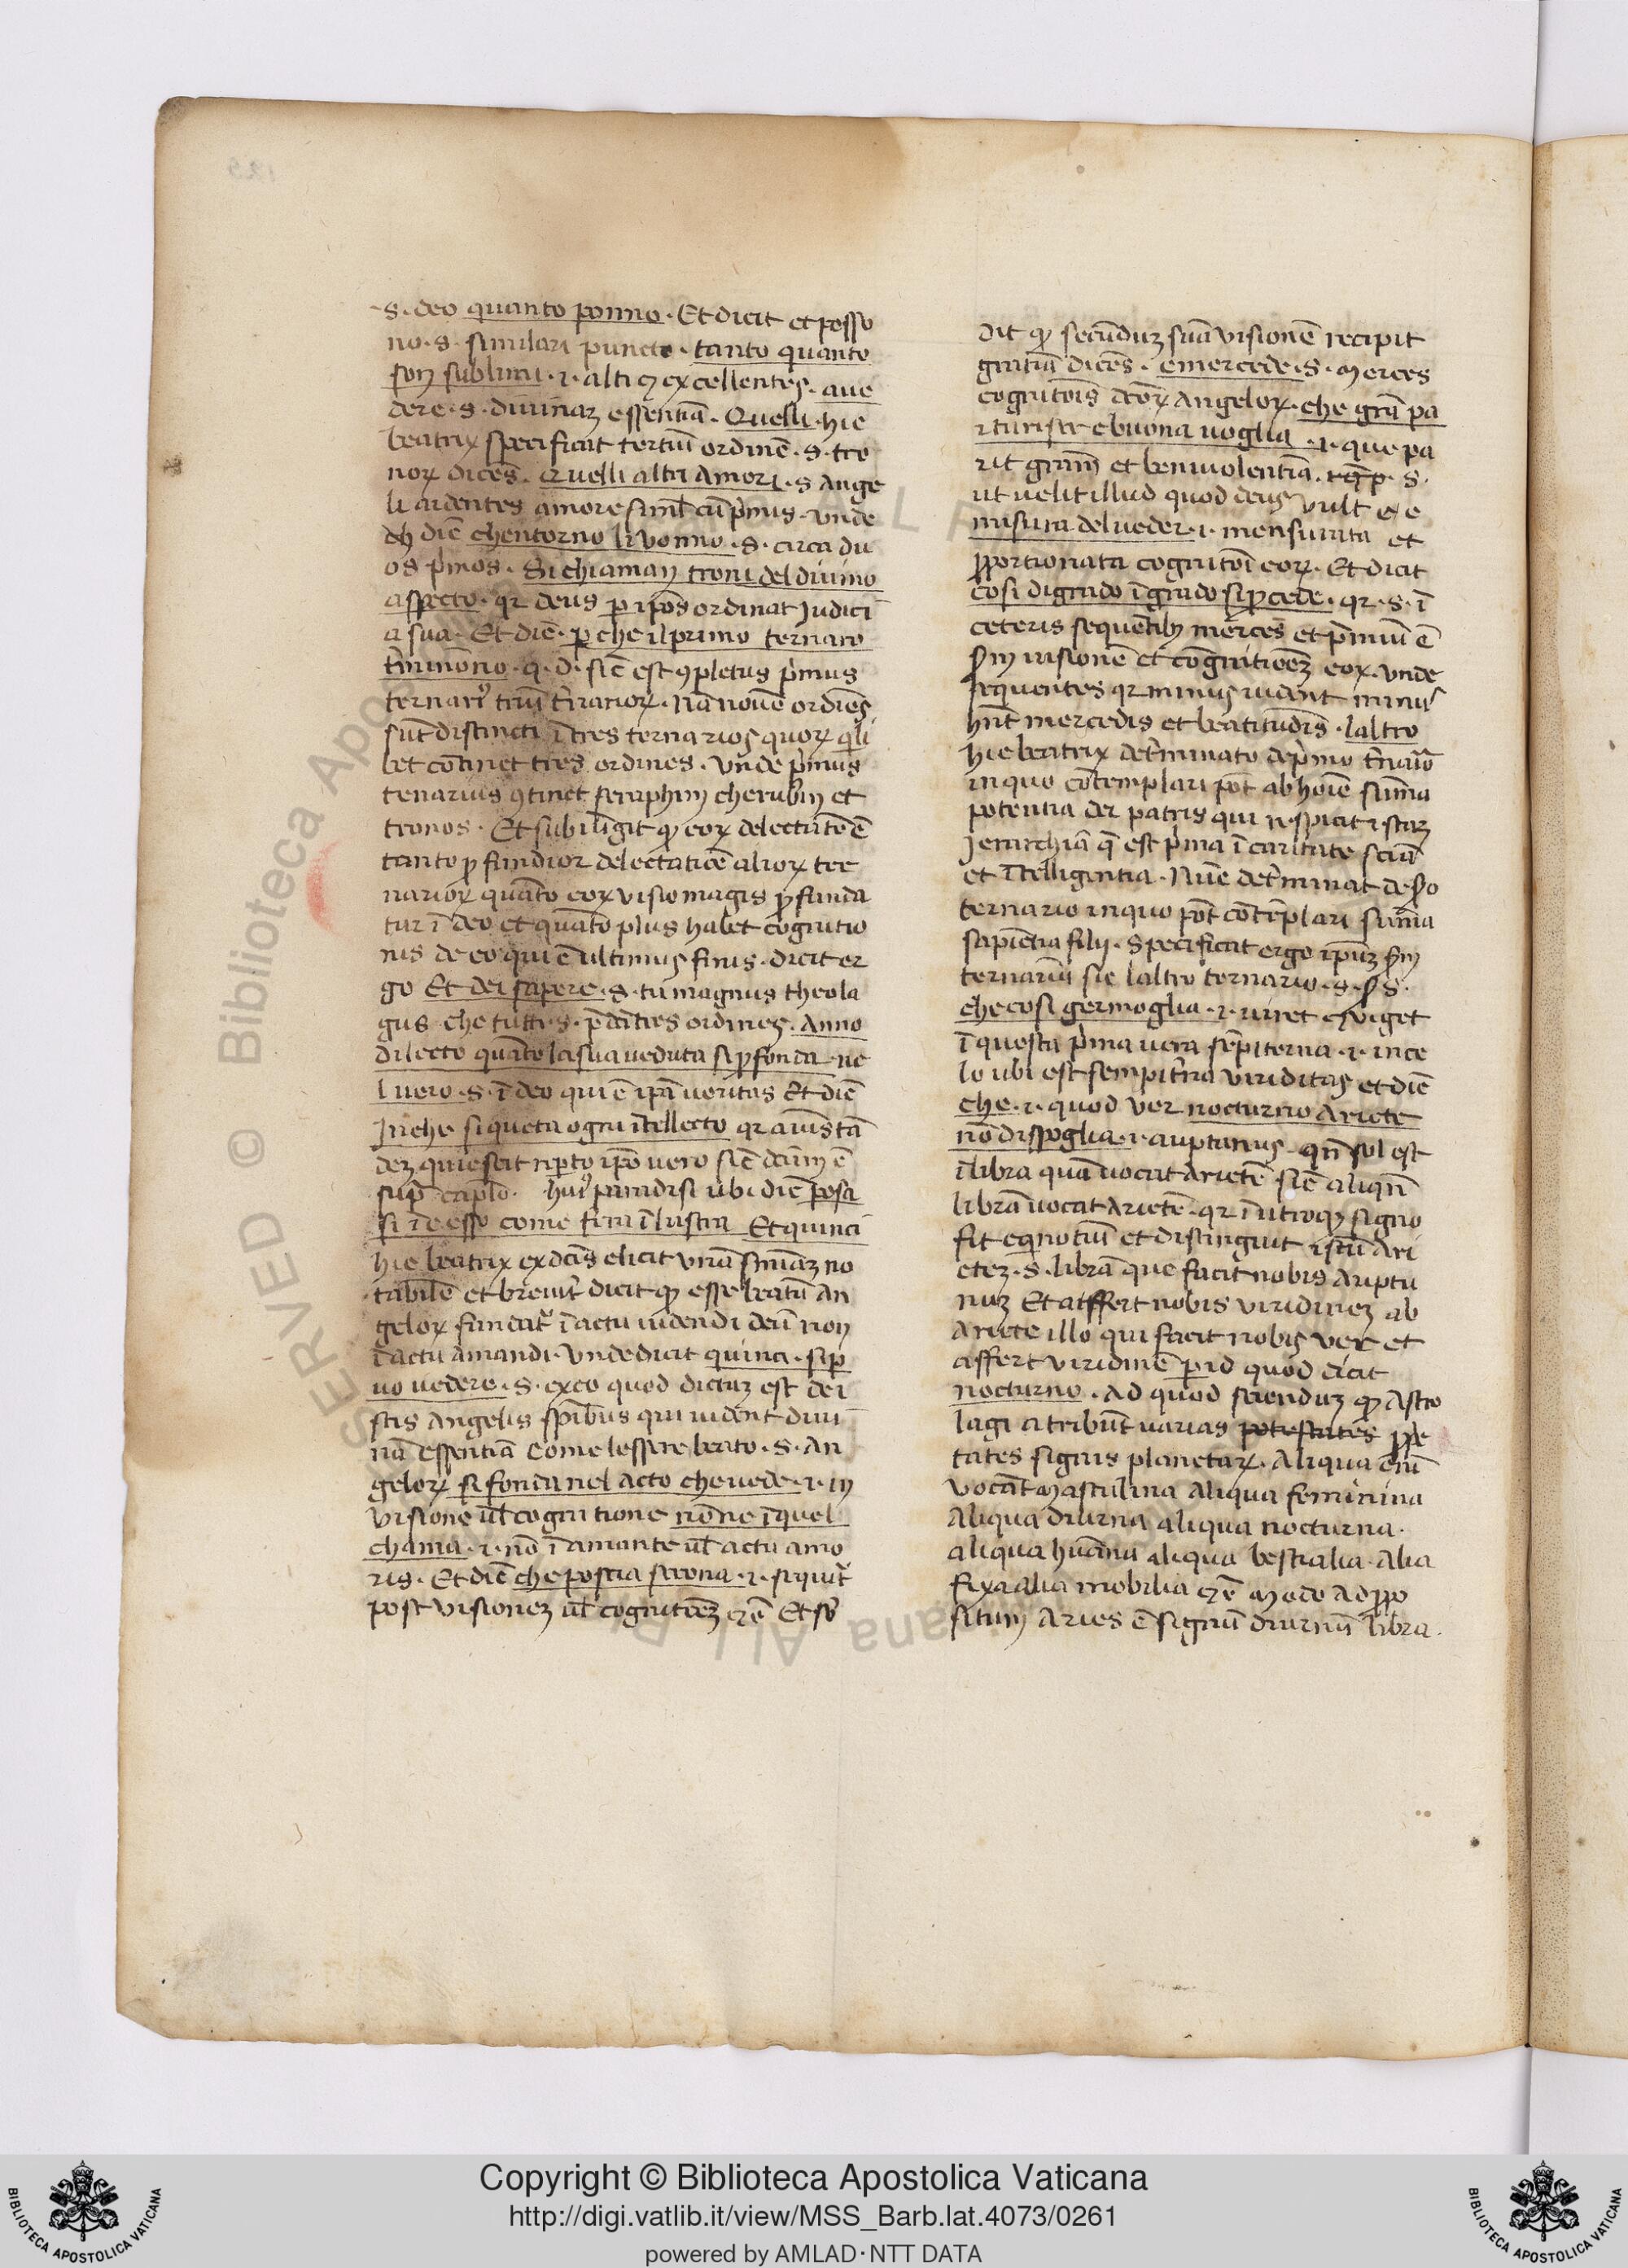 .s. deo quanto ponno. Et dicit et posso
no .s. similari puncto. tanto quanto
son sublimi .i. alti et excellentes. aue
dere .s. diuinaz essentiā. Quelli. hic
beatrix specificat tertiū ordinē .s. tro
noꝝ dicēs. Quelli altri Amori .s. Ange
li ardentes amore siml̄ cū p̄mis. vnde
dic̄ chentorno li vonno .s. circa du
os p̄mos. Si chiaman troni del diuino
aspecto. qꝛ deus ꝑ ip̄os ordinat Judici
a sua. Et dic̄. ꝑche il primo ternaro
t̄minōno. q.d. sic̄ est ꝯpletus p̄mus
ternariꝰ triū t̄narioꝝ. Nā nouē ordiēs
sūt distincti ī tres ternarios quoꝝ qͥli
bet cōtinet tres ordines. vnde p̄mus
tenarius ꝯtinet seraphin cherubin et
tronos. Et subiūgit qꝙ eoꝝ delectatō ē
tanto ꝓfundior delectatiōe alioꝝ ter
narioꝝ quāto eoꝝ visio magis ꝓfunda
tur ī deo et quāto plus habet cognitio
nis de eo qui ē ultimus finis. dicit er
go Et dei sapere .s. tu magnus theola
gus che tutti .s. p̄dc̄i tres ordines. Anno
dilecto quāto la sua veduta si ꝓfonda. ne
l vero .s. ī deo qui ē ip̄a veritas Et dic̄
In che si queta ogni ītellecto
dez quiescit reperto ip̄o vero sic̄ dc̄um ē
supͣ caplo. huiꝰ paradisi ubi dic̄ posa
si ī desso come fera ī lustra Et quinci
hic beatrix ex dc̄is elicit vnā sn̄iaz no
tabilē et breuit̄ dicit qꝙ esse beatū An
geloꝝ fundat̄ ī actu uidendi deū non
ī actu amandi. vnde dicit quinci. si pͦ
uo vedere .s. ex eo quod dictuz est de ī
stis Angelis sp̄ibus qui uident diui
nā essentiā Come lessere beato .s. An
geloꝝ si fonda nel acto che vede .i. in
visione ul̄ cognitione nōne ī quel
chama .i. nō ī amante ul̄ actu amo
ris. Et dic̄ che poscia secona .i. sequit̄
post visionez ul̄ cognitiōez
dit qꝙ secunduz suā visionē recipit
gratiā dicēs. e mercede .s. merces
cognitōis dc̄oꝝ Angeloꝝ. che grā pa
rturisce e buona uoglia .i. que pa
rit grām et beniuolentiā. s.
ut velit illud quod deus vult
misura del veder .i. mensurata et
ꝓportionata cognitōi eoꝝ. Et dicit
cosi digrado ī grado si ꝓcede. qꝛ .s. ī
ceteris sequentibꝫ merces et p̄miū ē
sm̄ visionē et cognitiōez eoꝝ. vnde
sequentes qꝛ minus uident minꝰ
hn̄t mercedis et beatitudis. laltro
hic beatrix det̄minato de p̄mo t̄nario
in quo cōtemplari pōt ab hoīe sum̄a
potentia dei patris qui respicit istaz
Jerarchiā q̄ est p̄ma ī caritate sciā
et ītelligentia. Nūc det̄minat de sͦo
ternario in quo pōt cōtēplari sum̄a
sapiētia filij. Specificat ergo ip̄um sm̄
ternariū sic laltro ternario .s.
che cosi germoglia .i. uiret et viget
ī questa p̄ma uera sēpiterna .i. in ce
lo ubi est sempit̄na viriditas et dic̄
che .i. quod ver nocturno Ariete
nō dispoglia .i. auptunus. qn̄ sol est
ī libra quā uocat Arietē. sic̄ aliqn̄
librā uocat Arietē. qꝛ ī utroqꝫ signo
fit eqnotiū et distinguit istū Ari
etez .s. librā que facit nobis Auptu
nuz Et affert nobis viridinez ab
Ariete illo qui facit nobis ver et
affert viridinē ꝑ id quod dicit
nocturno. Ad quod sciendūz qꝙ Astro
lagi atribūt varias potestates ꝓpe
tates signis planetaꝝ. Aliqua enī
vocāt Masculina Aliqua feminina
Aliqua diurna aliqua nocturna.
aliqua humana aliqua bestialia. Alia
fixa alia mobilia Modo ad ꝓpo
situm Aries ē signū diurnū libra.
Copyright © Biblioteca Apostolica Vaticana
http://digi.vatlib.it/view/MSS_Barb.lat.4073/0261
powered by AMLAD·NTT DATA
BIBLIOTECA APOSTOLICA VATICANA
BIBLIOTECA APOSTOLICA VATICANA